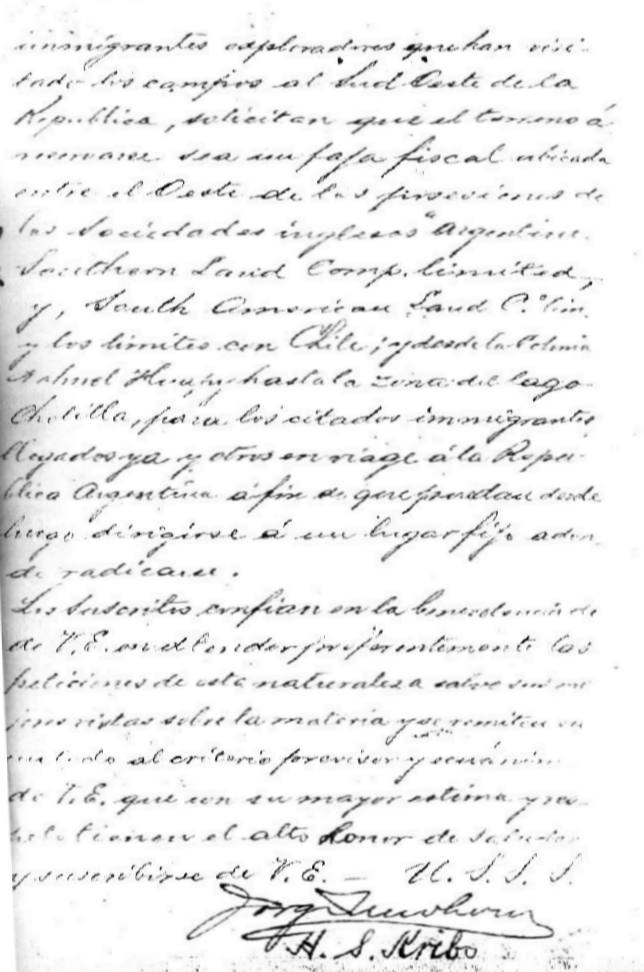 immigrantes exploradores que han visi-
tado los campos al Sud Oeste de la
Republica, solicitan que el terreno á
sea un faja fiscal ubicada
entre el Oeste de las posesiones de
las Sociedades inglesas "Argentine
Southern Land Comp. limited,
y, South American Land C.º lim
y los limites con Chile; y desde la Colonia
Nahuel Huapi hasta la zona del lago
Cholilla, para los citados immigrantes
llegados ya y otros en viage á la Repu-
blica Argentina á fin de que puedan desde
luego dirigirse á un lugar fijo adon-
de radicarse.
Los Suscritos confian en la benevolencia de
de V.E. en atender preferentemente las
peticiones de esta naturaleza salvo sus me
jores vistas sobre la materia y se remiten en
un todo al criterio previsor y
de V.E. que con su mayor estima y res-
peto tienen el alto honor de saludar
y suscribirse de V.E. — U. S. S. S.
H. S. Kribs